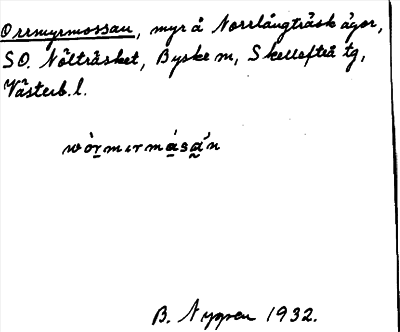 Orrmyrmossan, myr å Norrlångträsk ägor,
SO. Nölträsket, Byske sn, Skellefteå tg,
Västerb. l.
B. Nygren 1932.